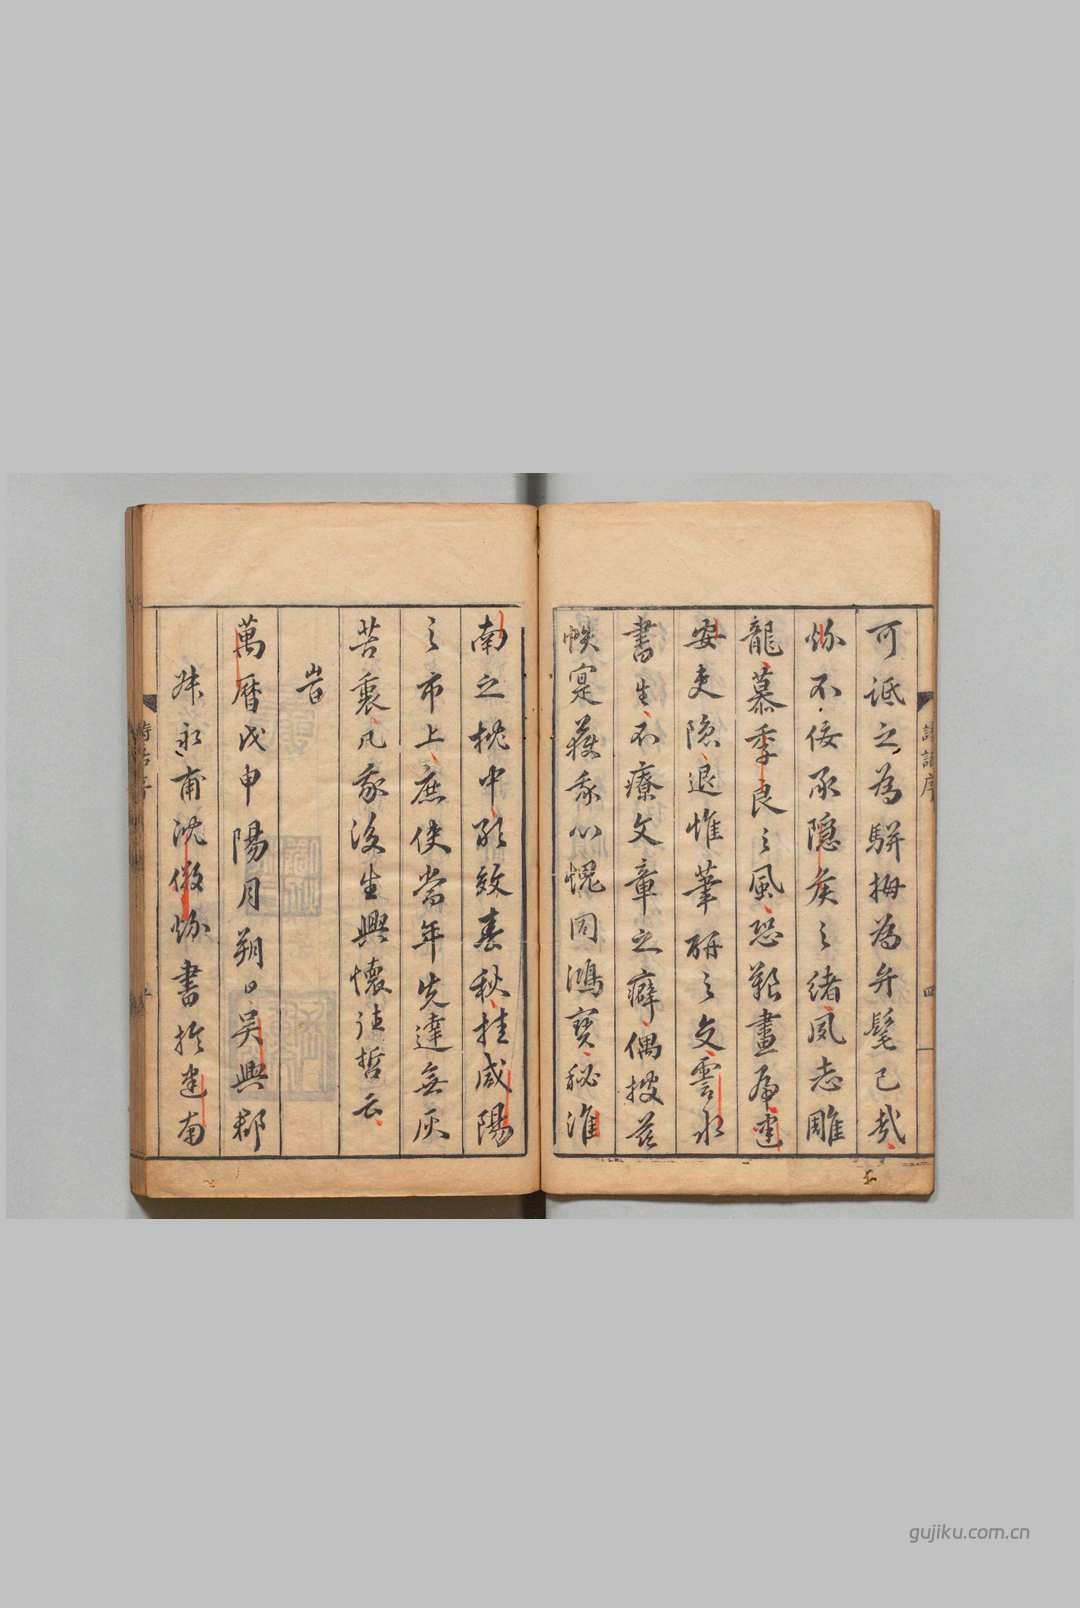 可詆之為駢拇為弁髦已哉
炌不佞承隱矦之緒風志雕
龍慕季良之風恐艱畫虎建
安吏隐退惟筆研之交雲水
書生不療文章之癖偶披茲
帙寔蓯我心愧同鴻寶秘淮
南之枕中敢效春秋挂咸陽
之市上庶使當年先達無灰
苦衷凡我後生興懷往哲云
峕
萬曆戊申陽月朔日吳興郡
永甫沈儆炌書於建南
詩話序
四
詩話序
gujiku.com.cn